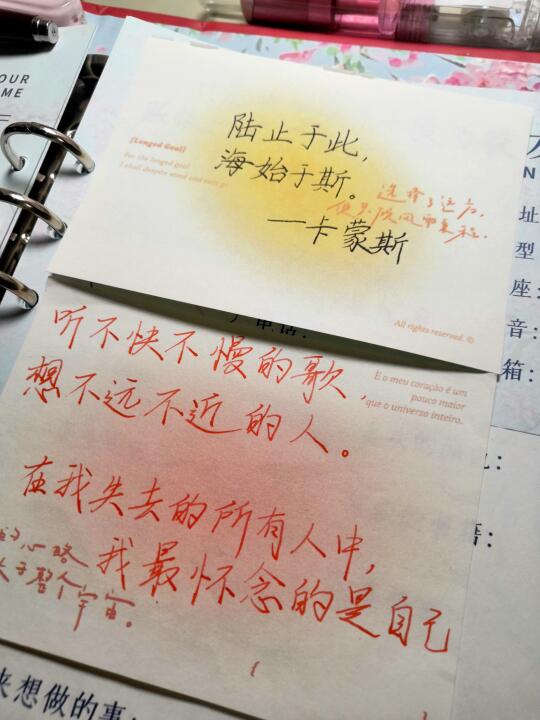 OUR
ME
[Longed Goal]
For the longed goal
I shall despite wind and rain go
陆止于此,
海始于斯。
—卡蒙斯
选择了远方,
便只顾风雨兼程.
All rights reserved. ©
N
址
型
座:
音:
箱:
听不快不慢的歌,
想不远不近的人。
E o meu coração é um
pouco maior
que o universo inteiro.
在我失去的所有人中,
我最怀念的是自己
心略
大于整个
宇宙。
来想做的事: